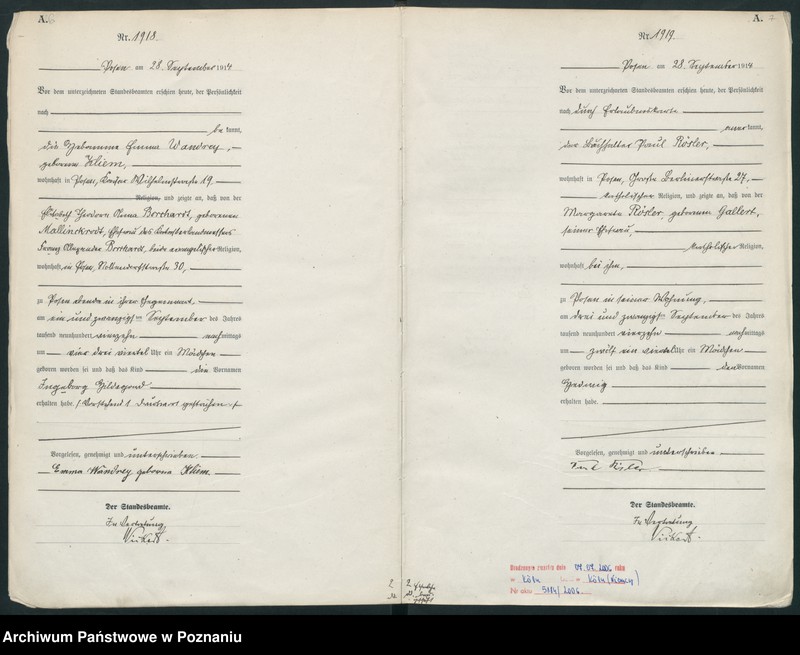 A.
Nr. 1918.
Posen am 28. September 1914
Vor dem unterzeichneten Standesbeamten erschien heute, der Persönlichkeit
nach
bekannt,
die Hebamme Emma Wandrey,
geborene Kliem,
wohnhaft in Posen, Kaiser Wilhelmstraße 19.
Religion, und zeigte an, daß von der
Borchardt, geborenen
Mallinckrodt, Ehefrau des
Franz Alexander Borchardt, beide evangelischer Religion,
wohnhaft in Posen, 30,
zu Posen ebenda in ihrer Gegenwart
am ein und zwanzigsten September des Jahres
tausend neunhundert vierzehn nachmittags
um vier drei viertel Uhr ein Mädchen
geboren worden sei und daß das Kind die Vornamen
Ingeborg Hildegard
erhalten habe. (Vorstehend 1 Druckwort gestrichen
Vorgelesen, genehmigt und unterschrieben
Emma Wandrey geborene Kliem
Der Standesbeamte.
In Vertretung
A. 7
Nr. 1919.
Posen am 28. September 1914
Vor dem unterzeichneten Standesbeamten erschien heute, der Persönlichkeit
nach durch
anerkannt,
der Buchhalter Paul Rösler,
wohnhaft in Posen, Große Berlinerstraße 27,
katholischer Religion, und zeigte an, daß von der
Margarete Rösler, geborenen Gallert,
seiner Ehefrau,
katholischer Religion,
wohnhaft bei ihm,
zu Posen in seiner Wohnung,
am drei und zwanzigsten September des Jahres
tausend neunhundert vierzehn nachmittags
um zwölf ein viertel Uhr ein Mädchen
geboren worden sei und daß das Kind den Vornamen
Hedwig
erhalten habe.
Vorgelesen, genehmigt und unterschrieben
Paul Rösler
Der Standesbeamte.
In Vertretung
Wzmiankowana zmarła dnia 07.07.2006 roku
w Köln w Köln (Niemcy)
Nr aktu 5114/2006
Archiwum Państwowe w Poznaniu